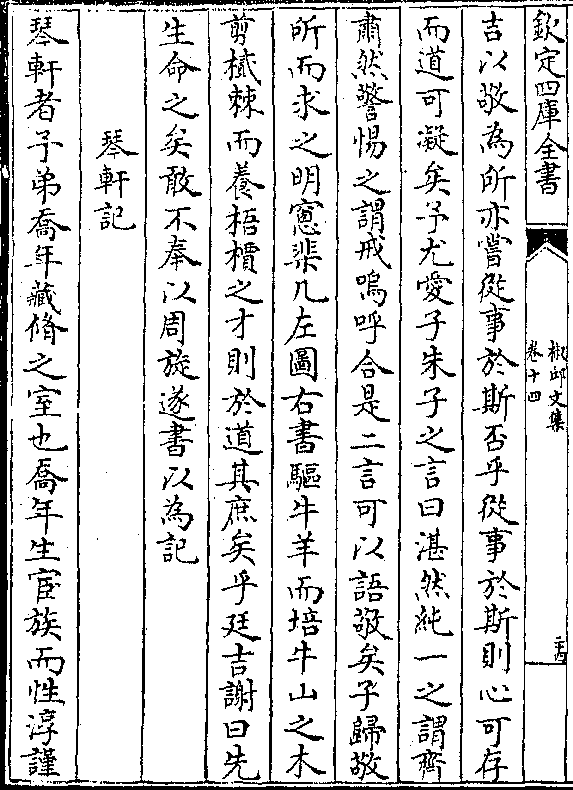 欽定四庫全書
椒邱文集
卷十四
吉以敬為所亦嘗從事於斯否乎從事於斯則心可存
而道可凝矣予尤愛子朱子之言曰湛然純一之謂齊
肅然警惕之謂戒嗚呼合是二言可以語敬矣子歸敬
所而求之明窻棐几左圖右書驅牛羊而培牛山之木
剪樲棘而養梧檟之才則於道其庶矣乎廷吉謝曰先
生命之矣敢不奉以周旋遂書以為記
琴軒記
琴軒者予弟喬年藏脩之室也喬年生宦族而性淳謹